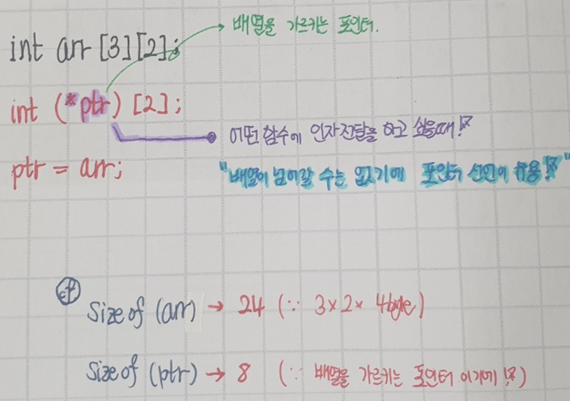 배열을 가르키는 포인터.
int arr [3][2];
int (*ptr) [2];
어떤 함수에 인자전달을 하고 싶을때!
ptr = arr;
"배열이 넘어갈 수는 없기에 포인터 선언이 유용!"
size of (arr) → 24 (∵ 3×2× 4byte)
size of (ptr) → 8 (∵ 배열을 가르키는 포인터 이기에!)